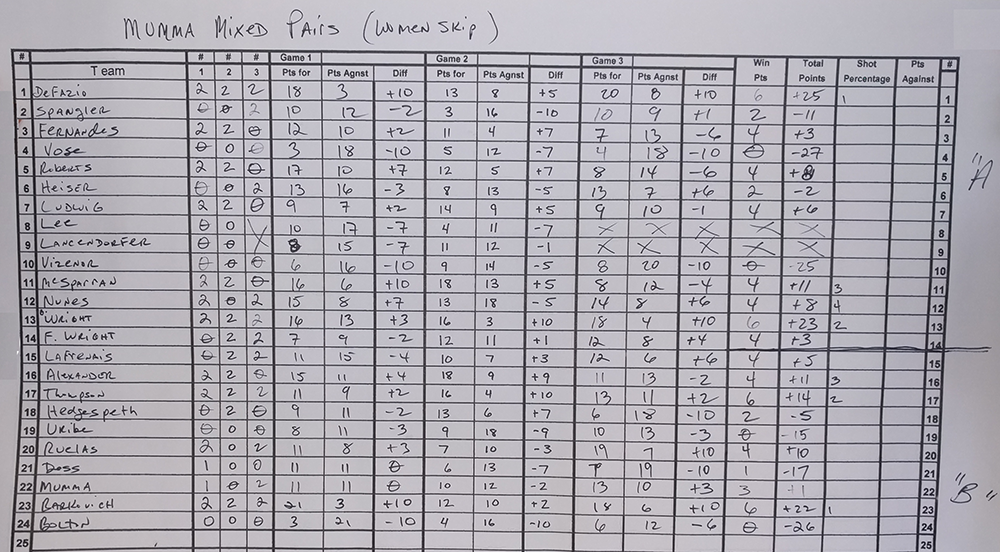 MUMMA MIXED PAIRS (WOMEN SKIP)
# # # # Game 1 Game 2 Game 3 Win Total Shot Pts #
Team 1 2 3 Pts for Pts Agnst Diff Pts for Pts Agnst Diff Pts for Pts Agnst Diff Pts Points Percentage Against
1 DeFazio 2 2 2 18 3 +10 13 8 +5 20 8 +10 6 +25 1 1
2 SPANGLER 0 0 2 10 12 -2 3 16 -10 10 9 +1 2 -11 2
3 FERNANDES 2 2 0 12 10 +2 11 4 +7 7 13 -6 4 +3 3
4 VOSE 0 0 0 3 18 -10 5 12 -7 4 18 -10 0 -27 4
5 ROBERTS 2 2 0 17 10 +7 12 5 +7 8 14 -6 4 +8 5
6 HEISER 0 0 2 13 16 -3 8 13 -5 13 7 +6 2 -2 6
7 LUDWIG 2 2 0 9 7 +2 14 9 +5 9 10 -1 4 +6 7
8 LEE 0 0 X 10 17 -7 4 11 -7 X X X X X 8
9 LANGENDORFER 0 0 X 8 15 -7 11 12 -1 X X X X X 9
"A"
10 VIZENOR 0 0 0 6 16 -10 9 14 -5 8 20 -10 0 -25 10
11 McSPARRAN 2 2 0 16 6 +10 18 13 +5 8 12 -4 4 +11 3 11
12 NUNES 2 0 2 15 8 +7 13 18 -5 14 8 +6 4 +8 4 12
13 WRIGHT 2 2 2 16 13 +3 16 3 +10 18 4 +10 6 +23 2 13
14 F. WRIGHT 0 2 2 7 9 -2 12 11 +1 12 8 +4 4 +3 14
15 LAFRENAIS 0 2 2 11 15 -4 10 7 +3 12 6 +6 4 +5 15
16 ALEXANDER 2 2 0 15 11 +4 18 9 +9 11 13 -2 4 +11 3 16
17 Thompson 2 2 2 11 9 +2 16 4 +10 13 11 +2 6 +14 2 17
18 Hedgespeth 0 2 0 9 11 -2 13 6 +7 6 18 -10 2 -5 18
19 URibe 0 0 0 8 11 -3 9 18 -9 10 13 -3 0 -15 19
20 RUELAS 2 0 2 11 8 +3 7 10 -3 19 7 +10 4 +10 20
21 Doss 1 0 0 11 11 0 6 13 -7 19 -10 1 -17 21
22 MUMMA 1 0 2 11 11 0 10 12 -2 13 10 +3 3 +1 22
"B"
23 BARKOVICH 2 2 2 21 3 +10 12 10 +2 18 6 +10 6 +22 1 23
24 BOLTON 0 0 0 3 21 -10 4 16 -10 6 12 -6 0 -26 24
25 25